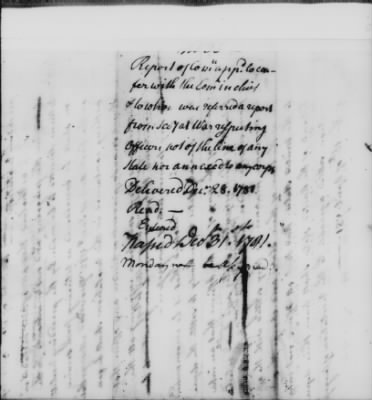 Report of Com.ee app.d to con-
fer with the Com.r in chief
to whom was referred a report
from Sec.y at War respecting
Officers not of the line of any
State nor annexed to any corps
Delivered Dec.r 28. 1781
Read. —
Entered
Passed Dec.r 31.st 1781.
Monday